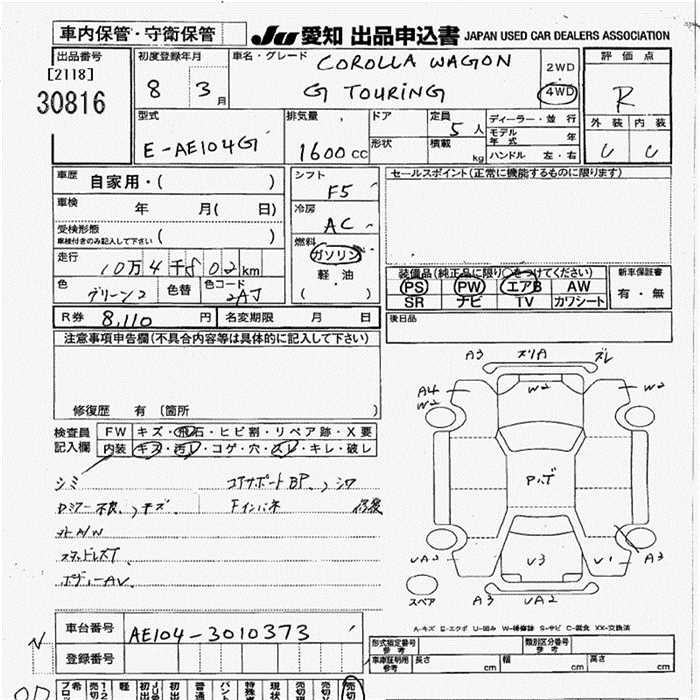 車内保管・守衛保管
JU 愛知 出品申込書 JAPAN USED CAR DEALERS ASSOCIATION
出品番号
[2118]
30816
初度登録年月
8 3月
車名・グレード
COROLLA WAGON
G TOURING
2WD
・
4WD
評価点
R
外装 内装
C C
型式
E-AE104G
排気量
1600cc
ドア
形状
定員
5人
積載
kg
ディーラー・並行
モデル年式 年
ハンドル 左・右
車歴 自家用・( )
車検 年 月( 日)
受検形態
車検付きのみ記入して下さい ( )
走行 10万4千802km
色 グリーン2 色替 色コード 2AJ
シフト
F5
冷房
AC
燃料
ガソリン
軽・油
( )
セールスポイント(正常に機能するものに限ります)
装備品(純正品に限り○をつけてください)
PS PW エアB AW
SR ナビ TV カワシート
新車保証書
有・無
後日品
R券 8,110円 名変期限 月 日
注意事項申告欄(不具合内容等は具体的に記入して下さい)
修復歴 有 (箇所 )
検査員
記入欄
FW キズ・飛石・ヒビ割・リペア跡・X要
内装 キズ・汚レ・コゲ・穴・スレ・キレ・破レ
シミ コアサポートBP、シワ
ロミラー不良、キズ Fインパネ 修復
社外A/W
スタッドレスT
ボディーAV
A3 ズリA ズレ
A4
W2 W2 W2
Pルボ
UA2 U3 U1 A3
スペア A3 UA2
A-キズ E-エクボ U-凹み W-補修跡 S-サビ C-腐食 XX-交換済
車台番号 AE104-3010373
登録番号
形式指定番号
参考
類別区分番号
参考
車庫証明用
参考
長さ cm 幅 cm 高さ cm
N